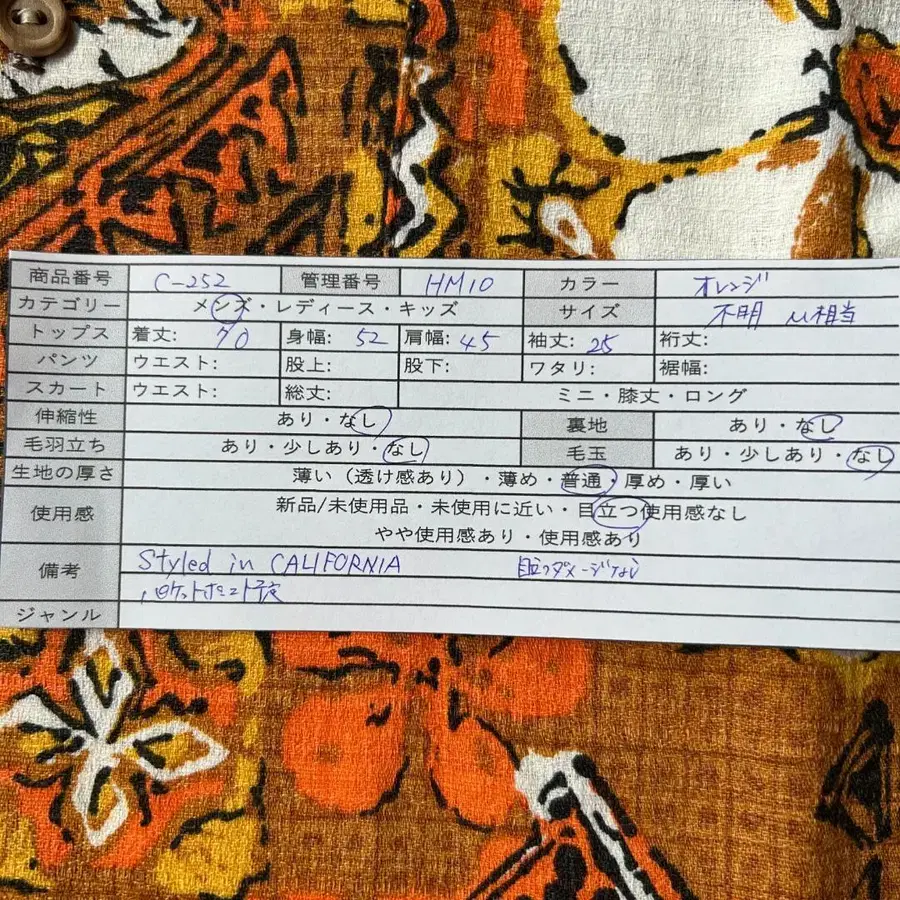 商品番号 C-252 管理番号 HM10 カラー オレンジ
カテゴリー メンズ・レディース・キッズ サイズ 不明 M相当
トップス 着丈: 70 身幅: 52 肩幅: 45 袖丈: 25 裄丈:
パンツ ウエスト: 股上: 股下: ワタリ: 裾幅:
スカート ウエスト: 総丈: ミニ・膝丈・ロング
伸縮性 あり・なし 裏地 あり・なし
毛羽立ち あり・少しあり・なし 毛玉 あり・少しあり・なし
生地の厚さ 薄い（透け感あり）・薄め・普通・厚め・厚い
使用感 新品/未使用品・未使用に近い・目立つ使用感なし
やや使用感あり・使用感あり
備考 Styled in CALIFORNIA 目立つダメージなし
ジャンル